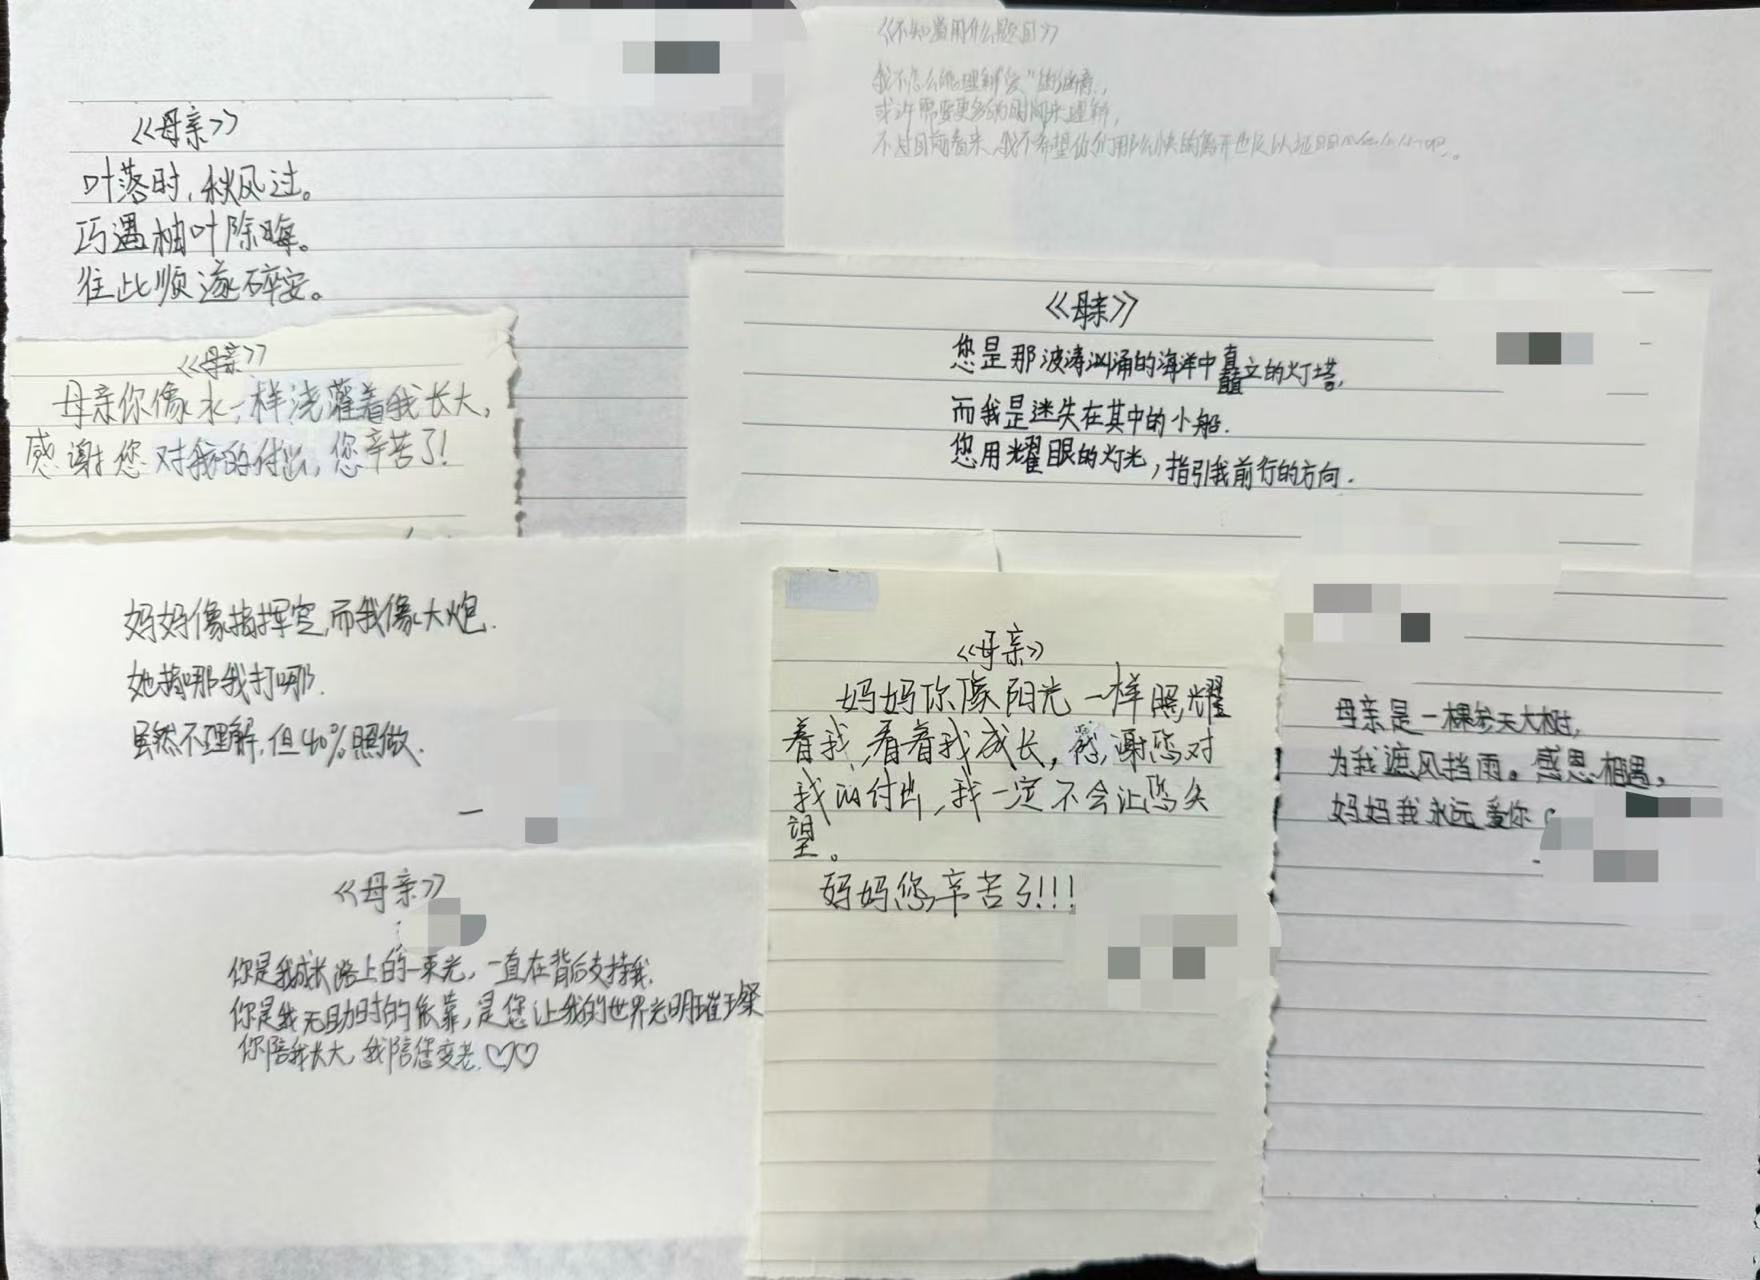 《母亲》
叶落时,秋风过。
巧遇柚叶除晦。
往此顺遂碎安。
《不知道用什么题目》
我不怎么能理解"爱"的涵意,
或许需要更多的时间来理解,
不过目前看来,我不希望你们那么快的离开
《母亲》
母亲你像水一样浇灌着我长大,
感谢您对我的付出,您辛苦了!
《母亲》
您是那波涛汹涌的海洋中矗立的灯塔,
而我是迷失在其中的小船.
您用耀眼的灯光,指引我前行的方向.
妈妈像指挥官,而我像大炮.
她指哪我打哪.
虽然不理解,但40%照做.
《母亲》
妈妈你像阳光一样照耀
着我,看着我成长,感谢您对
我的付出,我一定不会让您失
望。
妈妈您辛苦了!!!
母亲是一棵参天大树,
为我遮风挡雨。感恩相遇,
妈妈我永远爱你
《母亲》
你是我成长路上的一束光,一直在背后支持我.
你是我无助时的依靠,是您让我的世界光明璀璨
你陪我长大,我陪您变老.♡♡